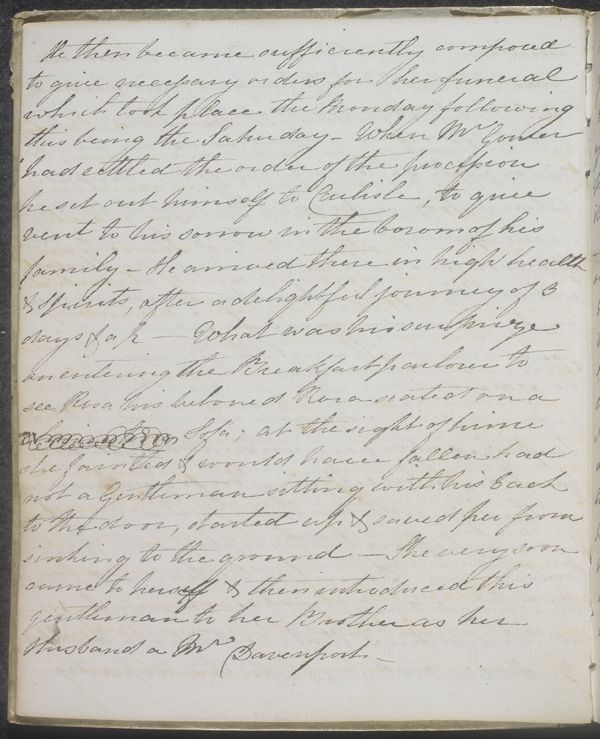 He then became sufficiently composed
to give necessary orders for her funeral
which took place the Monday following
this being the Saturday - When Mr Gower
had settled the order of the procession
he set out himself to Carlisle, to give
vent to his sorrow in the bosom of his
family - He arrived there in high health
& spirits, after a delightful journey of 3
days & a ½ - What was his surprize
on entering the Breakfast parlour to
see Rosa his beloved Rosa seated on a
Sofa; at the sight of him
she fainted & would have fallen had
not a Gentleman sitting with his back
to the door, started up & saved her from
sinking to the ground - She very soon
came to herself & then introduced this
gentleman to her Brother as her
Husband a Mr Davenport -